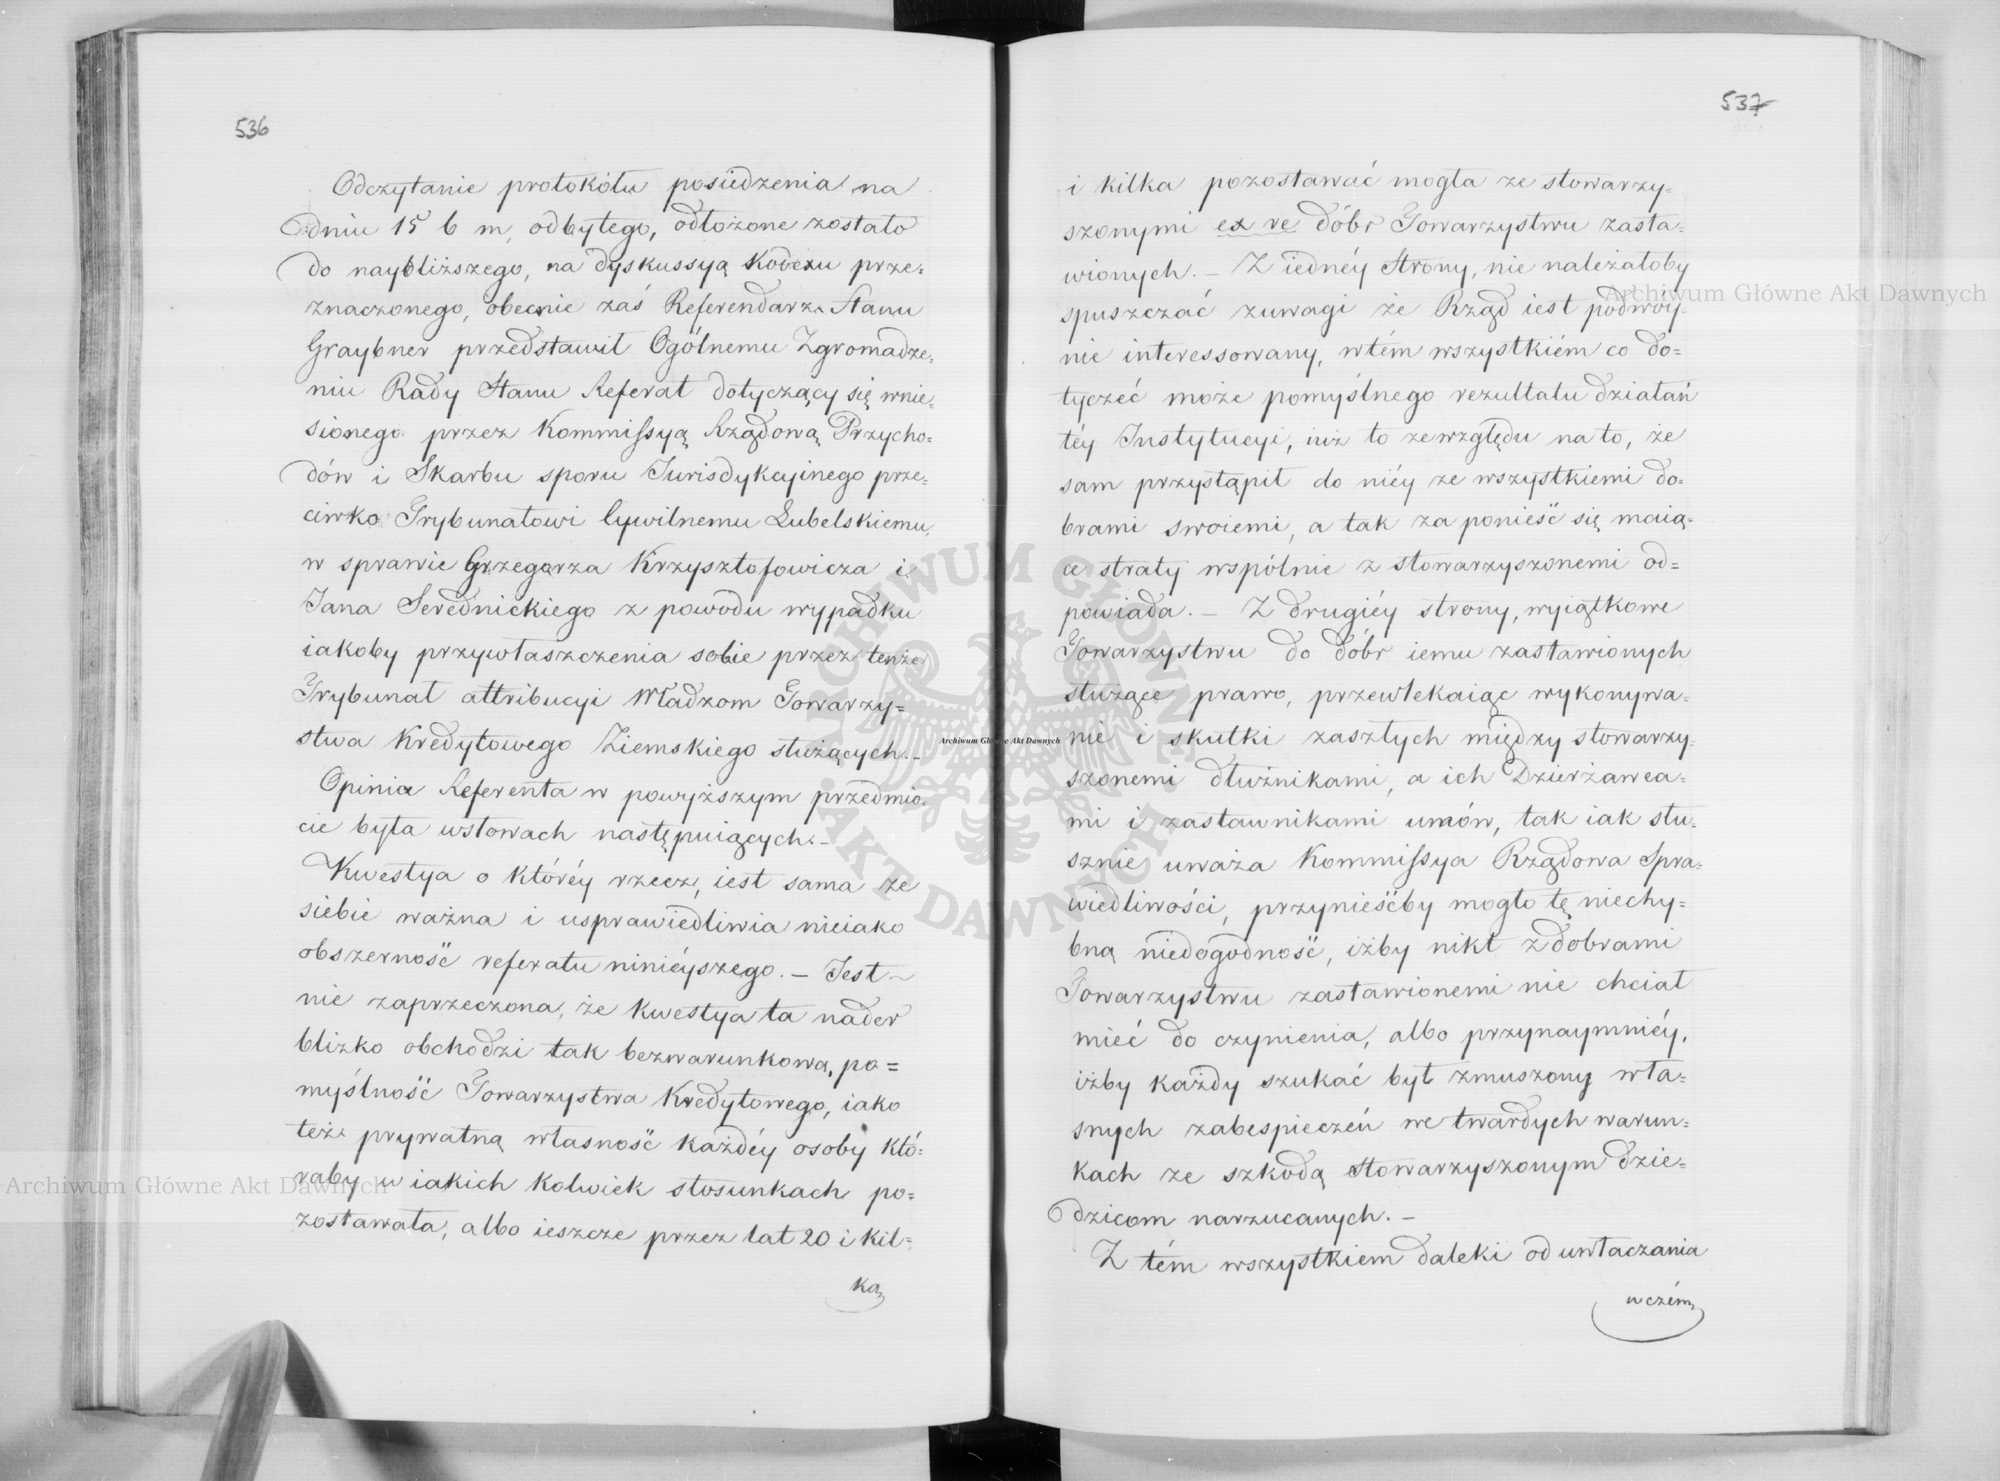 536
Odczytanie protokółu posiedzenia na
dniu 15 b m, odbytego, odłożone zostało
do naybliższego, na dyskussyą Kodexu prze=
znaczonego, obecnie zaś Referendarz Stanu
Graybner przedstawił Ogólnemu Zgromadze=
niu Rady Stanu Referat dotyczący się wnie=
sionego przez Kommissyą Rządową Przycho=
dów i Skarbu sporu Jurisdykcyinego prze=
ciwko Trybunałowi Cywilnemu Lubelskiemu,
w sprawie Grzegorza Krzysztofowicza i
Jana Serednickiego z powodu wypadku
iakoby przywłaszczenia sobie przez tenże
Trybunał attribucyi Władzom Towarzy=
stwa Kredytowego Ziemskiego służących. –
Opinia Referenta w powyższym przedmio=
cie była wsłowach następuiących. –
Kwestya o któréy rzecz, iest sama ze
siebie ważna i usprawiedliwia nieiako
obszerność referatu ninieyszego. – Jest
nie zaprzeczona, że kwestya ta nader
blizko obchodzi tak bezwarunkową, po=
myślność Towarzystwa Kredytowego, iako
też prywatną własność każdéy osoby któ=
raby w iakich kolwiek stosunkach po=
zostawała, albo ieszcze przez lat 20 i kil=
ka
537
i kilka pozostawać mogła ze stowarzy=
szonymi ex re dóbr Towarzystwu zasta=
wionych. – Z iednéy Strony, nie należałoby
spuszczać zuwagi że Rząd iest podwóy=
nie interessowany, wtém wszystkiém co do=
tyczéć może pomyślnego rezultatu działań
téy Instytucyi, iuż to ze względu na to, że
sam przystąpił do niéy ze wszystkiemi do=
brami swoiemi, a tak za ponieść się maią=
ce straty wspólnie z stowarzyszonemi od=
powiada. – Z drugiéy strony, wyiątkowe
Towarzystwu do dóbr iemu zastawionych
służące prawo, przewlekaiąc wykonywa=
nie i skutki zaszłych między stowarzy=
szonemi dłużnikami, a ich Dzierżawca=
mi i zastawnikami umów, tak iak słu=
sznie uważa Kommissya Rządowa Spra=
wiedliwości, przynieśćby mogło tę niechy=
bną niedogodność, iżby nikt z dobrami
Towarzystwu zastawionemi nie chciał
mieć do czynienia, albo przynaymniéy,
iżby każdy szukać był zmuszony wła=
snych zabespieczeń we twardych warun=
kach ze szkodą stowarzyszonym dzie=
dzicom narzucanych. –
Z tém wszystkiem daleki od uwłaczania
w czém
Archiwum Główne Akt Dawnych
Archiwum Główne Akt Dawnych
Archiwum Główne Akt Dawnych
ARCHIWUM GŁÓWNE AKT DAWNYCH